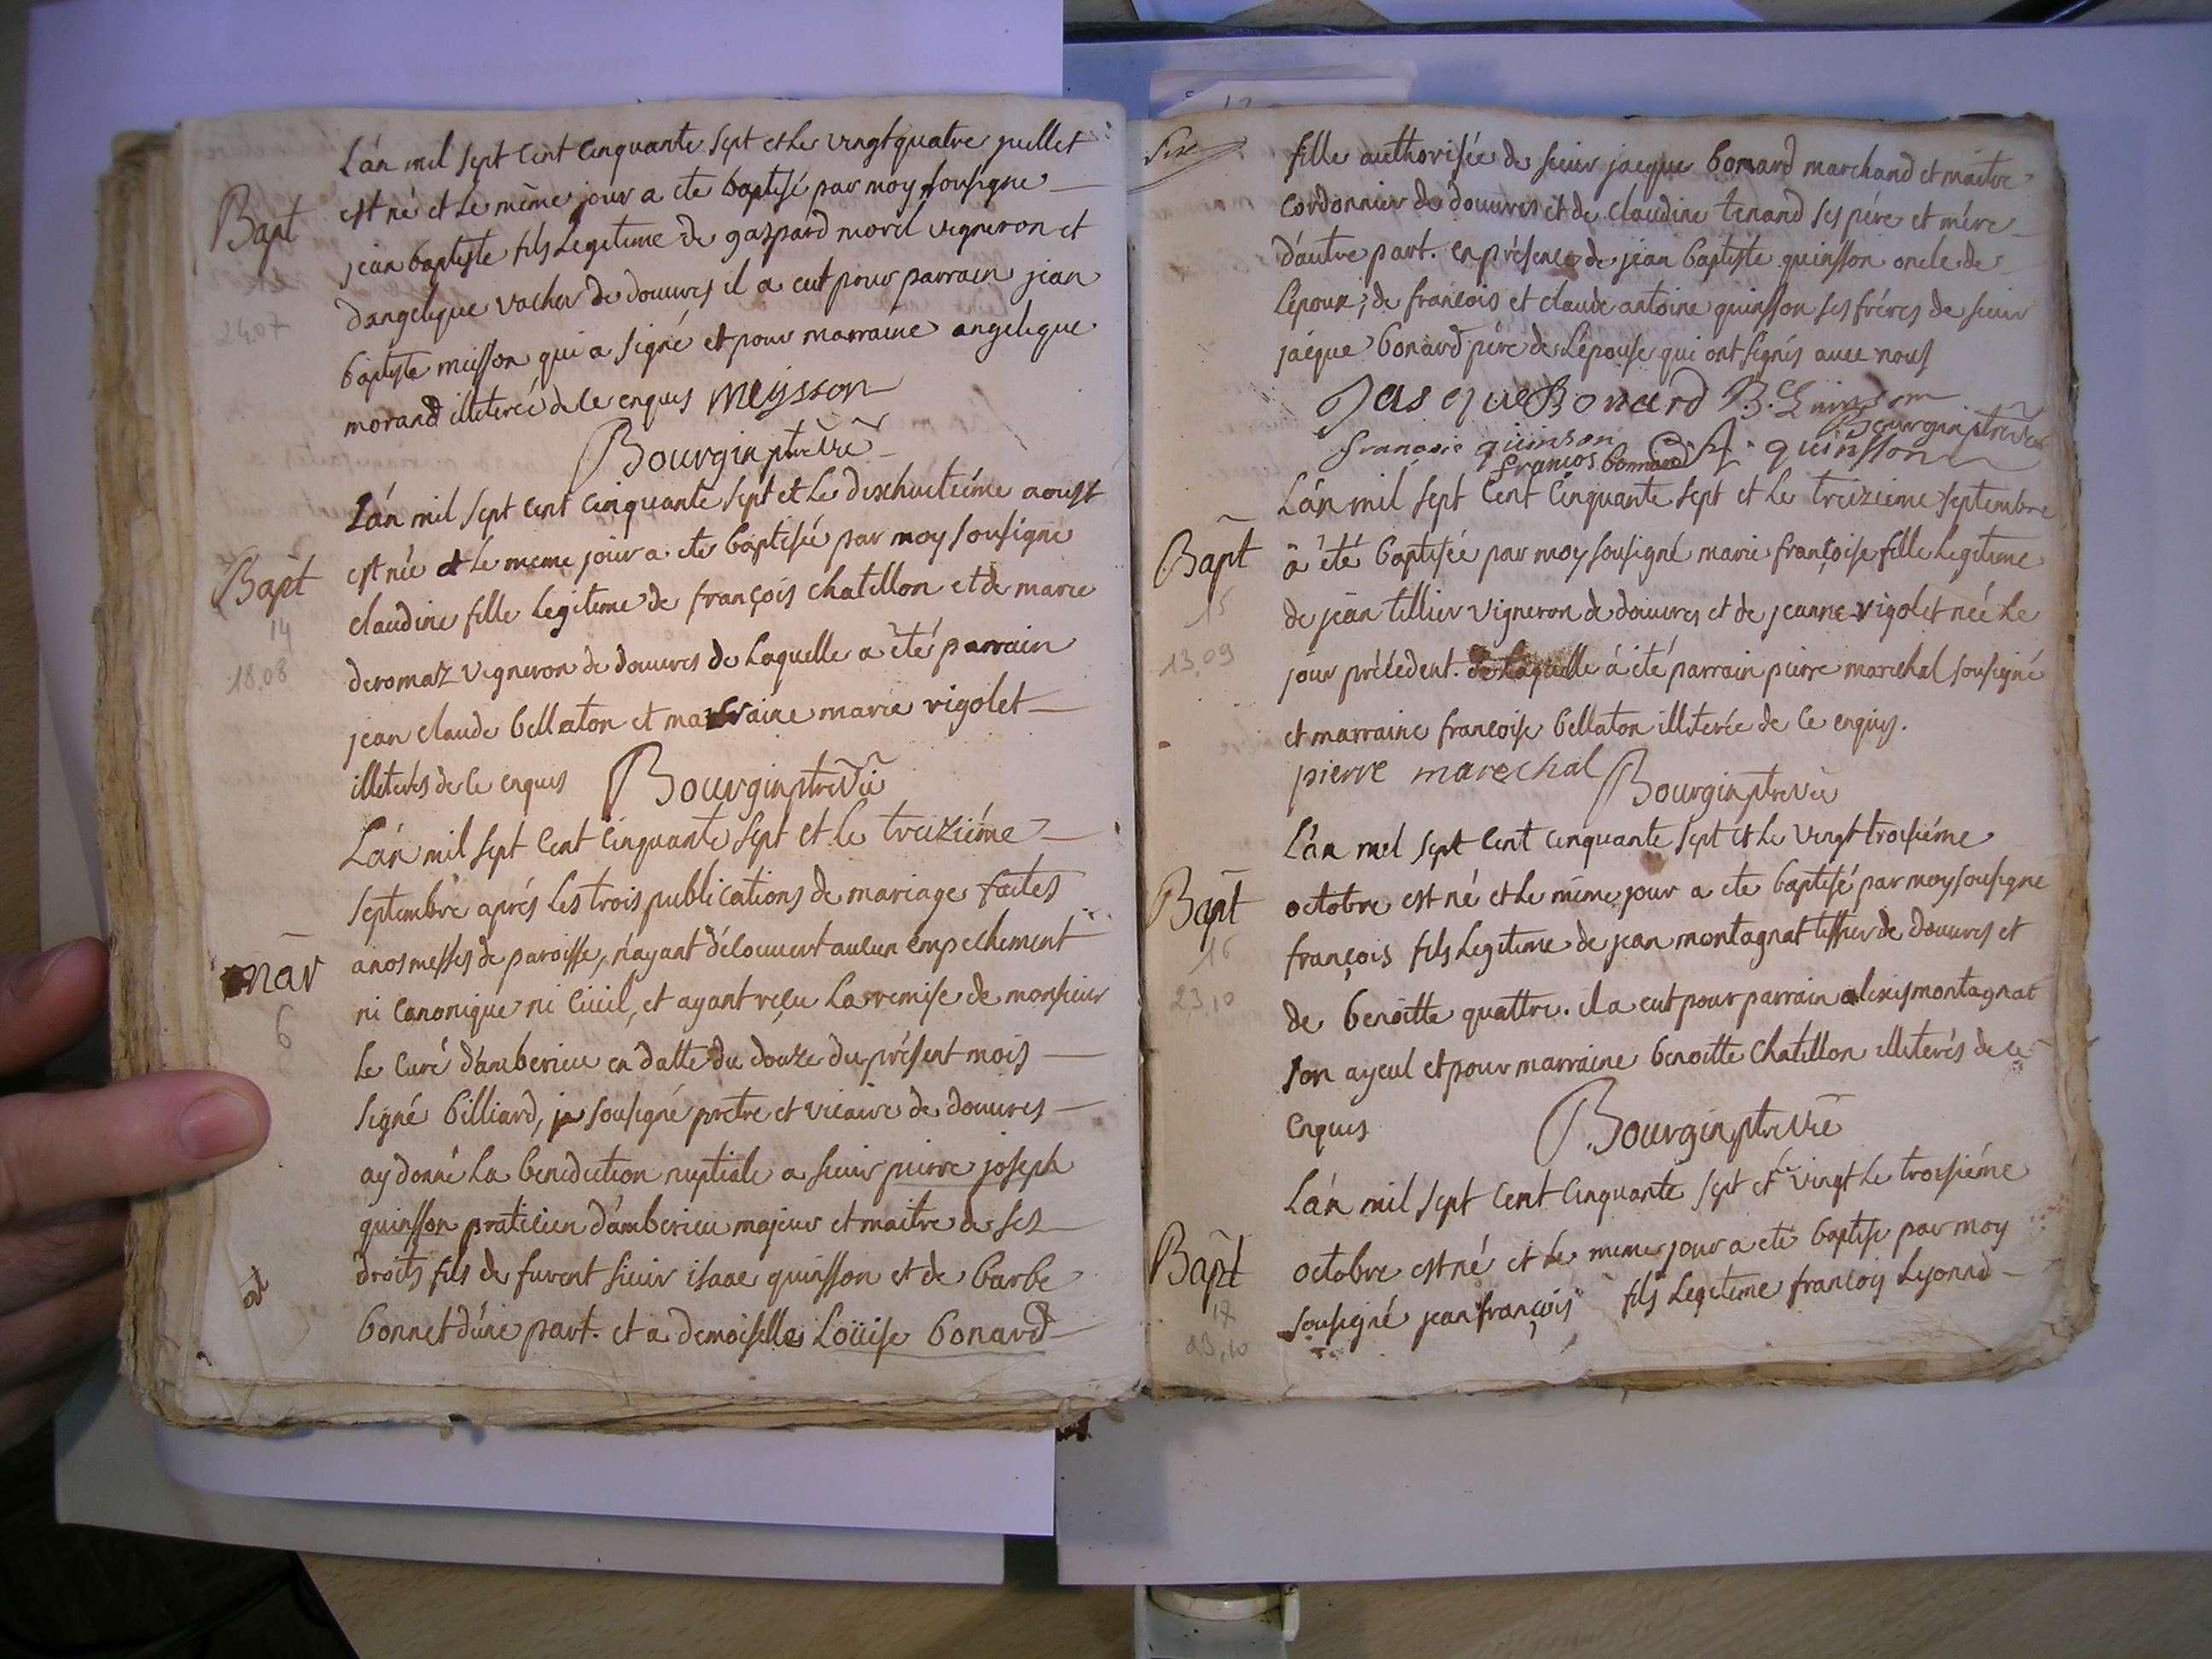 L'an mil sept cent cinquante sept et le vingt quatre juillet
Bapt
est né et le même jour a ete baptisé par moy sousigne
jean baptiste fils legitime de gaspard morel vigneron et
24.07
d'angelique vacher de douures il a eut pour parrain jean
baptiste meisson qui a signé et pour marraine angelique
morand illiterée de ce enquis Meysson
Bourgin ptre vic
L'an mil sept cent cinquante sept et le dixhuitiéme aoust
Bapt
est née et le meme jour a ete baptisée par moy sousigne
14
claudine fille legitime de françois chatillon et de marie
18.08
deromaz vigneron de douures de laquelle a été parrain
jean claude bellaton et marraine marie rigolet
illiterés de ce enquis Bourgin ptre vic
L'an mil sept cent cinquante sept et le treiziéme
septembre aprés les trois publications de mariage faites
a nos messes de paroisse, n'ayant découuert aucun empechement
mar
ni canonique ni ciuil, et ayant reçu la remise de monsieur
6
le curé d'amberieu en datte du douze du présent mois
signé billiard, je sousigné pretre et vicaire de douures
ay donné la benediction nuptiale a sieur pierre joseph
quinsson praticien d'amberieu majeur et maitre de ses
droits fils de furent sieur isaac quinsson et de barbe
bonnet d'une part. et a demoiselle Loüise bonard
Six
fille authorisée de sieur jacque bonard marchand et maitre
cordonnier de douures et de claudine tenand ses pére et mére
d'autre part. en présence de jean baptiste quinsson oncle de
l'epoux; de francois et claude antoine quinsson ses fréres de sieur
jacque bonard pére de l'epouse qui ont signés auec nous
Jasque Bonard B. Quinson
Bourgin ptre vic
francois quinson
francos bonnard C. A. quinsson
L'an mil sept cent cinquante sept et le treizieme septembre
Bapt
a été baptisée par moy sousigné marie françoise fille legitime
15
de jean tillier vigneron de douures et de jeanne rigolet née le
13.09
jour précédent. de laquelle a été parrain pierre marechal sousigné
et marraine francoise bellaton illiterée de ce enquis.
pierre marechal Bourgin ptre vic
L'an mil sept cent cinquante sept et le vingt troisiéme
Bapt
octobre est né et le même jour a ete baptisé par moy sousigne
16
françois fils legitime de jean montagnat tissier de douures et
23.10
de benoitte quattre. il a eut pour parrain alexis montagnat
son ayeul et pour marraine benoitte chatillon illiterés de ce
enquis Bourgin ptre vic
L'an mil sept cent cinquante sept et vingt le troisiéme
Bapt
octobre est né et le meme jour a eté baptise par moy
17
sousigné jean françois fils legitime francois Lyonnd
23.10